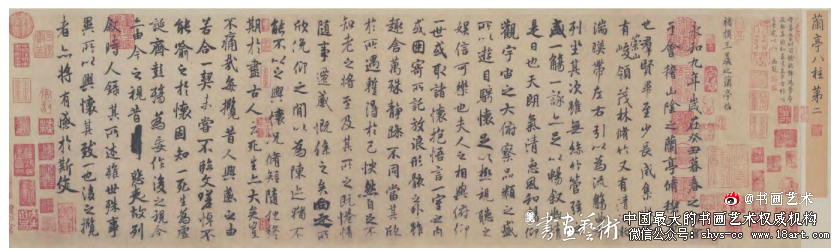 蘭亭八柱第二
褚摸王羲之蘭亭帖
永和九年歲在癸丑暮春之初會
于會稽山陰之蘭亭脩稧事
也羣賢畢至少長咸集此地
有崇山峻領茂林脩竹又有清流激
湍暎帶左右引以為流觴曲水
列坐其次雖無絲竹管弦之
盛一觴一詠亦足以暢敘幽情
是日也天朗氣清惠風和暢仰
觀宇宙之大俯察品類之盛
所以遊目騁懷足以極視聽之
娛信可樂也夫人之相與俯仰
一世或取諸懷抱悟言一室之內
或因寄所託放浪形骸之外雖
趣舍萬殊靜躁不同當其欣
於所遇蹔得於己快然自足不
知老之將至及其所之既惓情
隨事遷感慨係之矣向之所
欣俛仰之間以為陳迹猶不
能不以之興懷況脩短隨化終
期於盡古人云死生亦大矣豈
不痛哉每攬昔人興感之由
若合一契未嘗不臨文嗟悼不
能喻之於懷固知一死生為虛
誕齊彭殤為妄作後之視今
亦由今之視昔悲夫故列
敘時人錄其所述雖世殊事
異所以興懷其致一也後之攬
者亦將有感於斯文
書畫藝術
@书画艺术
中国最大的书画艺术权威机构
微信公众号: shys-cc www.18art.com